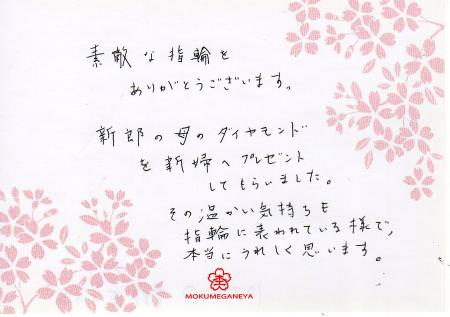 素敵な指輪を
ありがとうございます。
新郎の母のダイヤモンド
を新婦へプレゼント
してもらいました。
その温かい気持ちも
指輪に表われている様で、
本当にうれしく思います。
MOKUMEGANEYA